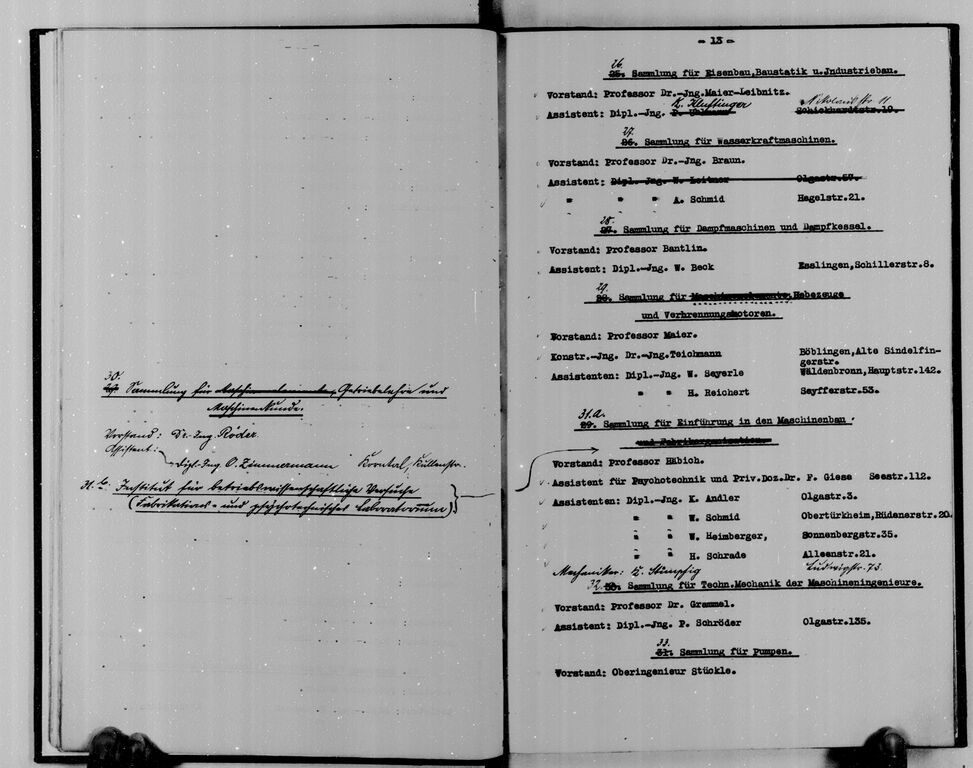 30.
29. Sammlung für Maschinenelemente, Getriebelehre und
Maschinenkunde.
Vorstand: Dr.-Ing. Röder.
Assistent:
Dipl.-Ing. O. Zimmermann Korntal, Küllenstr.
31.b. Institut für betriebswissenschaftliche Versuche
(Fabrikations- und psychotechnisches Laboratorium).
- 13 -
26.
25. Sammlung für Eisenbau,Baustatik u.Jndustriebau.
Vorstand: Professor Dr.-Jng.Maier-Leibnitz.
K. Kluftinger Nikolausstr 11
Assistent: Dipl.-Jng. Schickhardtstr.19.
27.
26. Sammlung für Wasserkraftmaschinen.
Vorstand: Professor Dr.-Jng. Braun.
Assistent: Dipl.-Jng. W. Leitner Olgastr.57.
" " " A. Schmid Hegelstr.21.
28.
27. Sammlung für Dampfmaschinen und Dampfkessel.
Vorstand: Professor Bantlin.
Assistent: Dipl.-Jng. W. Beck Esslingen,Schillerstr.8.
29.
28. Sammlung für Maschinenelemente, Hebezeuge
und Verbrennungsmotoren.
Vorstand: Professor Maier.
Konstr.-Jng. Dr.-Jng.Teichmann Böblingen,Alte Sindelfin-
gerstr.
Assistenten: Dipl.-Jng. W. Seyerle Waldenbronn,Hauptstr.142.
" " H. Reichert Seyfferstr.53.
31.a.
29. Sammlung für Einführung in den Maschinenbau
und Fabrikorganisation.
Vorstand: Professor Häbich.
Assistent für Psychotechnik und Priv.Doz.Dr. F. Giese Seestr.112.
Assistenten: Dipl.-Jng. K. Andler Olgastr.3.
" " W. Schmid Obertürkheim,Rüdenerstr.20.
" " W. Heimberger, Sonnenbergstr.35.
" " H. Schrade Alleenstr.21.
Mechaniker: K. Stümpfig Ludwigstr.73
32. 30. Sammlung für Techn.Mechanik der Maschineningenieure.
Vorstand: Professor Dr. Grammel.
Assistent: Dipl.-Jng. P. Schröder Olgastr.135.
33.
31. Sammlung für Pumpen.
Vorstand: Oberingenieur Stückle.